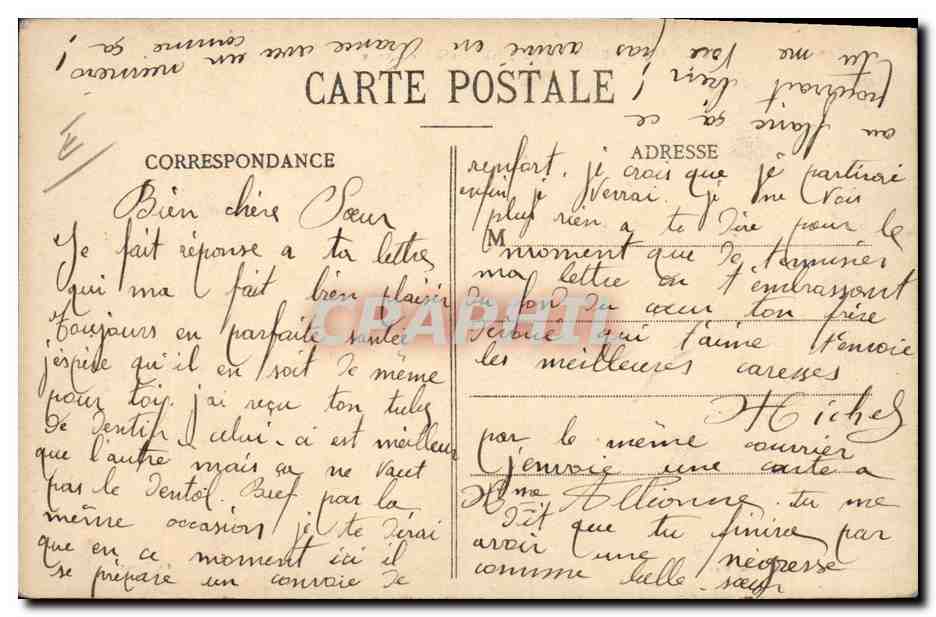 CARTE POSTALE
CORRESPONDANCE
II
Bien chère Sœur
Je fait réponse a ta lettre
qui ma fait bien plaisir
Toujours en parfaite santée
j'espère qu'il en soit de même
pour toi. j'ai reçu ton tube
de dentif. celui-ci est meilleur
que l'autre mais ça ne vaut
pas le Dentol. Bref par la
même occasion je te dirai
que en ce moment ici il
se prépare un convoie de
ADRESSE
M
renfort. je crois que je partirai
enfin je verrai. je ne vois
plus rien a te dire pour le
moment que de terminés
ma lettre en t'embrassant
du fond du cœur ton frère
dévoué qui t'aime t'envoie
les meilleures caresses
Michel
par le même courrier
j'envoie une carte a
Mme Allionne. tu me
dit que tu finira par
avoir une négresse
comme belle-sœur
au plaire ça ce
pourrait bien !
tu me voie pas arrivé en France avec un numéro
comme ça !
CPAPHIL